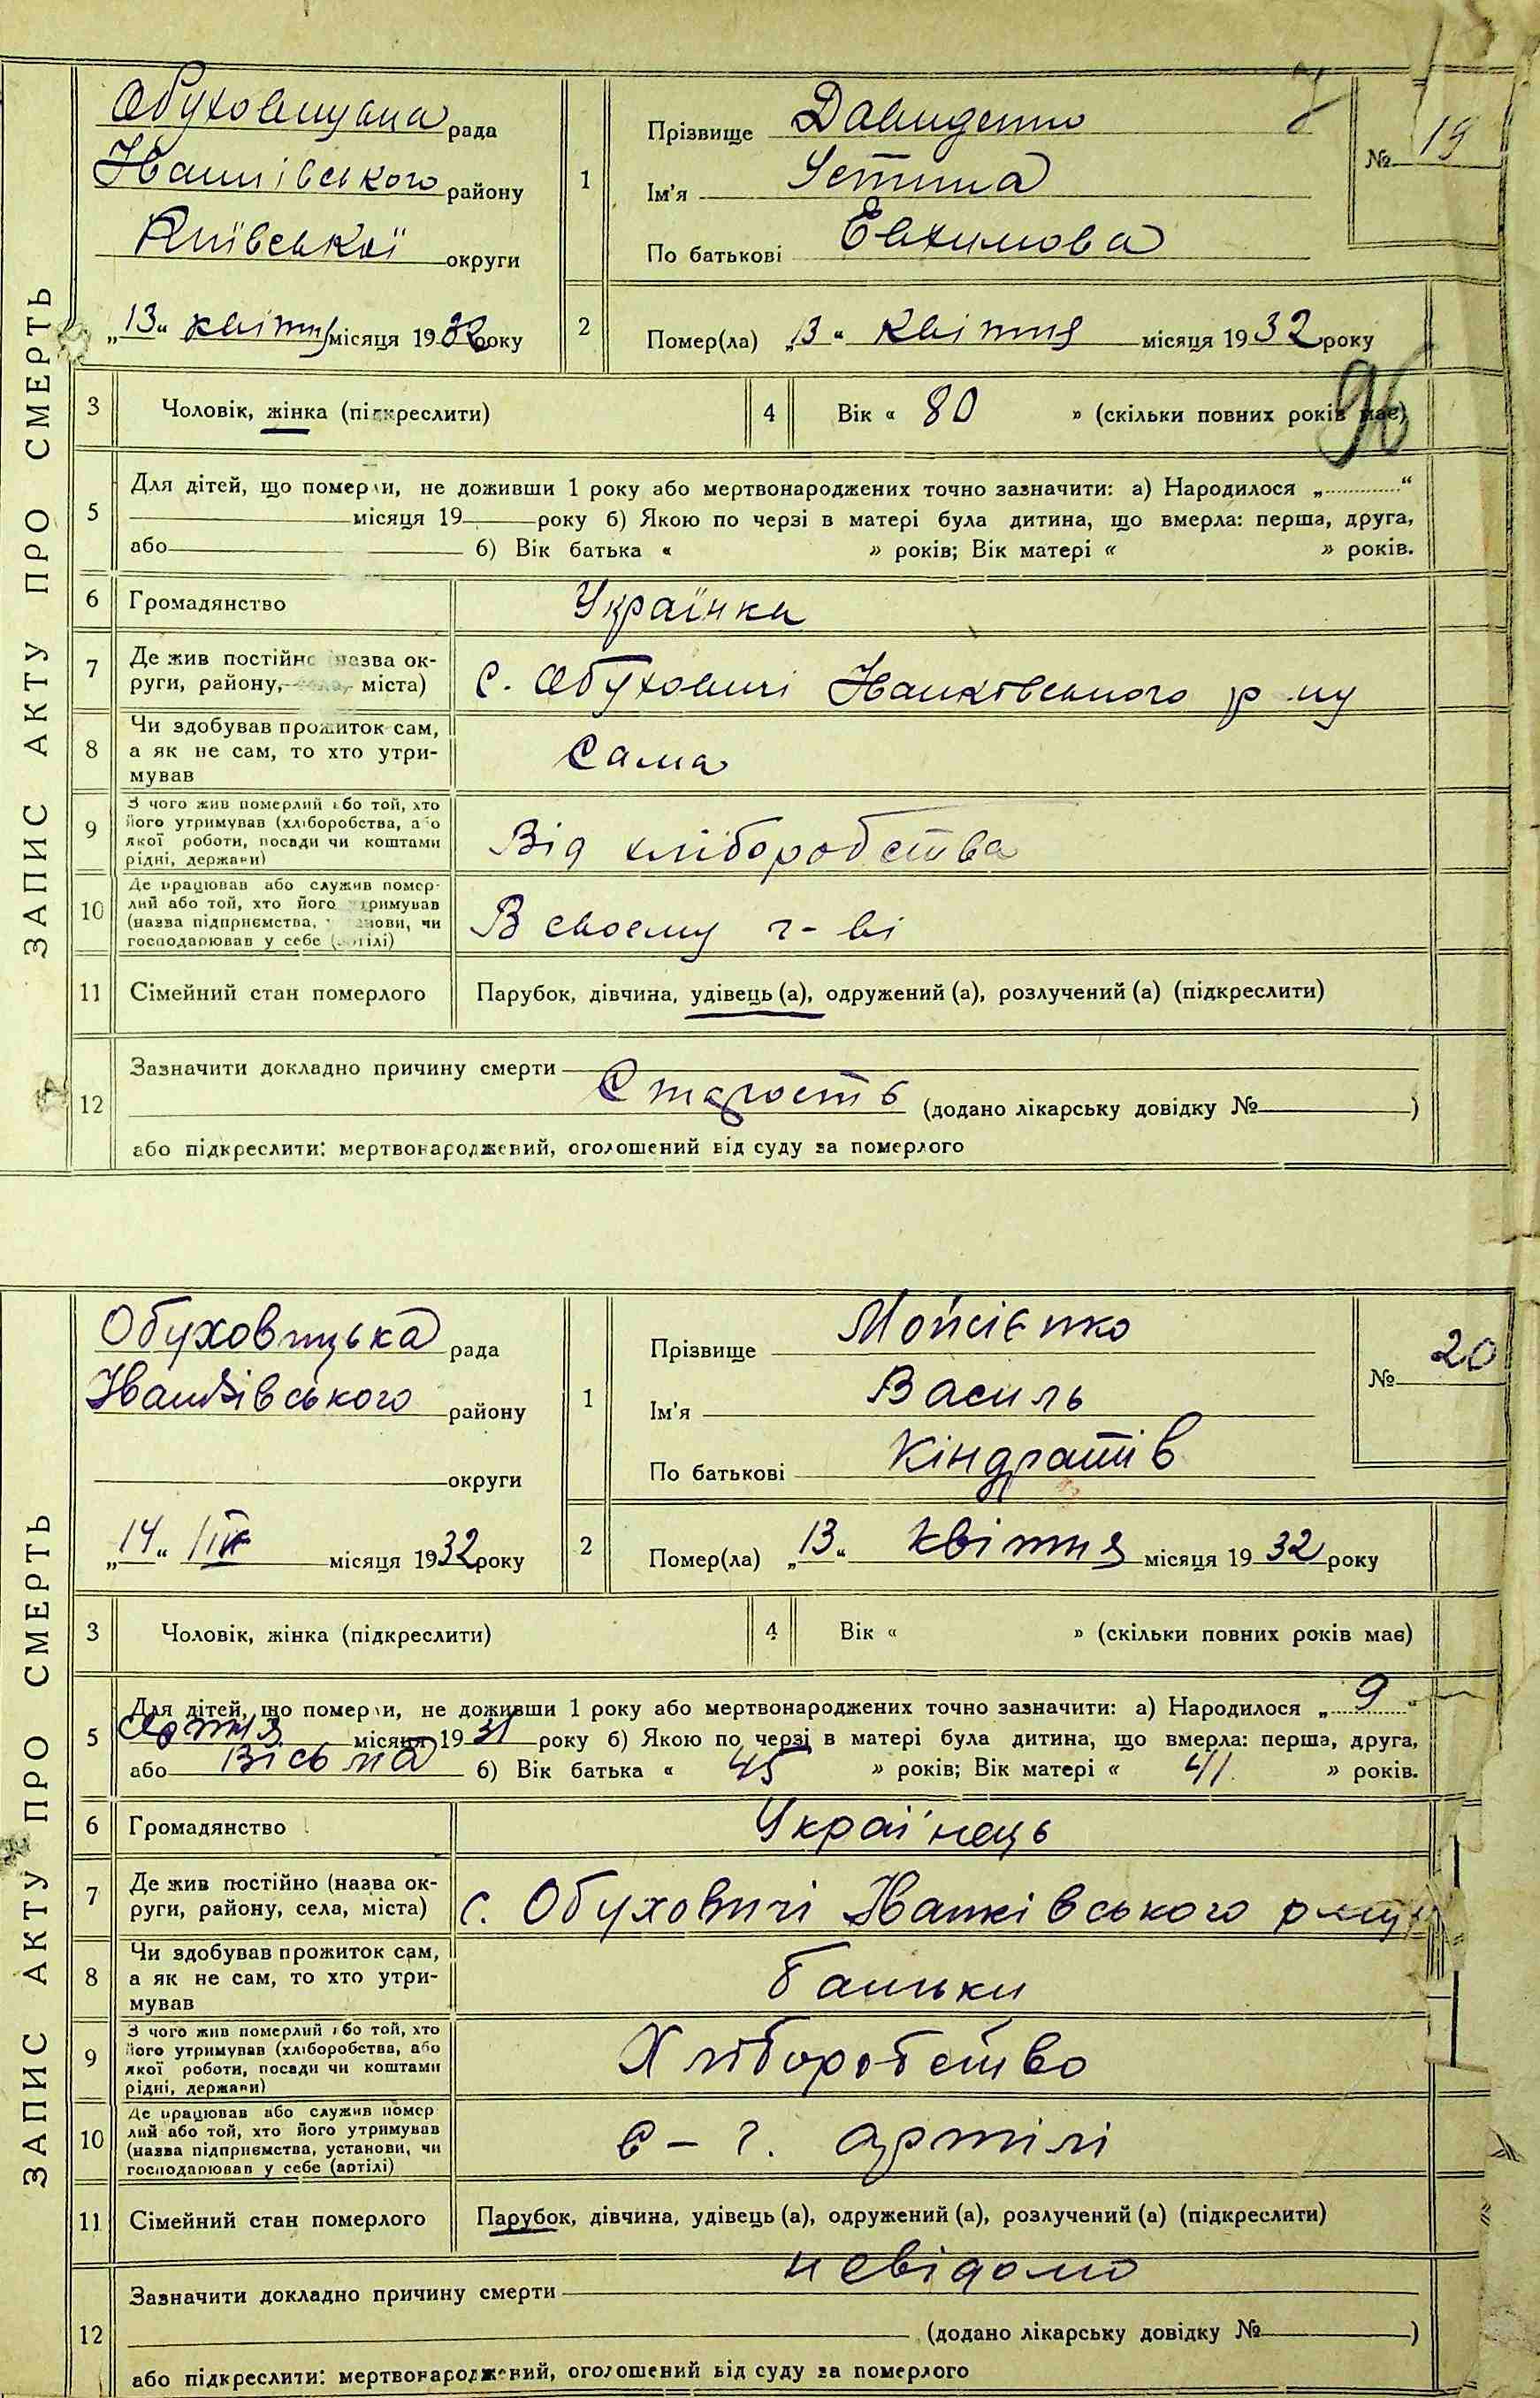 ЗАПИС АКТУ ПРО СМЕРТЬ
Обуховицька рада
Іванківського району
Київської округи
„13“ квітня місяця 1932 року
1
Прізвище Давиденко
Ім'я Устина
По батькові Евхимова
№ 19
2
Помер(ла) „13“ квітня місяця 1932 року
3
Чоловік, жінка (підкреслити)
4
Вік « 80 » (скільки повних років має)
96
5
Для дітей, що померли, не доживши 1 року або мертвонароджених точно зазначити: а) Народилося „ “
місяця 19 року б) Якою по черзі в матері була дитина, що вмерла: перша, друга,
або б) Вік батька « » років; Вік матері « » років.
6
Громадянство Українка
7
Де жив постійно (назва ок-
руги, району, села, міста)
с. Обуховичі Іванківського р-ну
8
Чи здобував прожиток сам,
а як не сам, то хто утри-
мував
Сама
9
З чого жив померлий або той, хто
його утримував (хліборобства, або
якої роботи, посади чи коштами
рідні, держави)
Від хліборобства
10
Де працював або служив помер-
лий або той, хто його утримував
(назва підприємства, установи, чи
господарював у себе (артілі)
В своему г-ві
11
Сімейний стан померлого
Парубок, дівчина, удівець (а), одружений (а), розлучений (а) (підкреслити)
12
Зазначити докладно причину смерти
Старость (додано лікарську довідку № )
або підкреслити: мертвонароджений, оголошений від суду за померлого
ЗАПИС АКТУ ПРО СМЕРТЬ
Обуховицька рада
Іванківського району
округи
„14“ місяця 1932 року
1
Прізвище Мойсієнко
Ім'я Василь
По батькові Кіндратів
№ 20
2
Помер(ла) „13“ квітня місяця 1932 року
3
Чоловік, жінка (підкреслити)
4
Вік « » (скільки повних років має)
5
Для дітей, що померли, не доживши 1 року або мертвонароджених точно зазначити: а) Народилося „9“
місяця 1931 року б) Якою по черзі в матері була дитина, що вмерла: перша, друга,
або Вісьма б) Вік батька « 45 » років; Вік матері « 41 » років.
6
Громадянство Українець
7
Де жив постійно (назва ок-
руги, району, села, міста)
с. Обуховичі Іванківського р-ну
8
Чи здобував прожиток сам,
а як не сам, то хто утри-
мував
батьки
9
З чого жив померлий або той, хто
його утримував (хліборобства, або
якої роботи, посади чи коштами
рідні, держави)
Хліборобство
10
Де працював або служив помер
лий або той, хто його утримував
(назва підприємства, установи, чи
господарював у себе (артілі)
с-г. артілі
11
Сімейний стан померлого
Парубок, дівчина, удівець (а), одружений (а), розлучений (а) (підкреслити)
12
невідомо
Зазначити докладно причину смерти
(додано лікарську довідку № )
або підкреслити: мертвонароджений, оголошений від суду за померлого